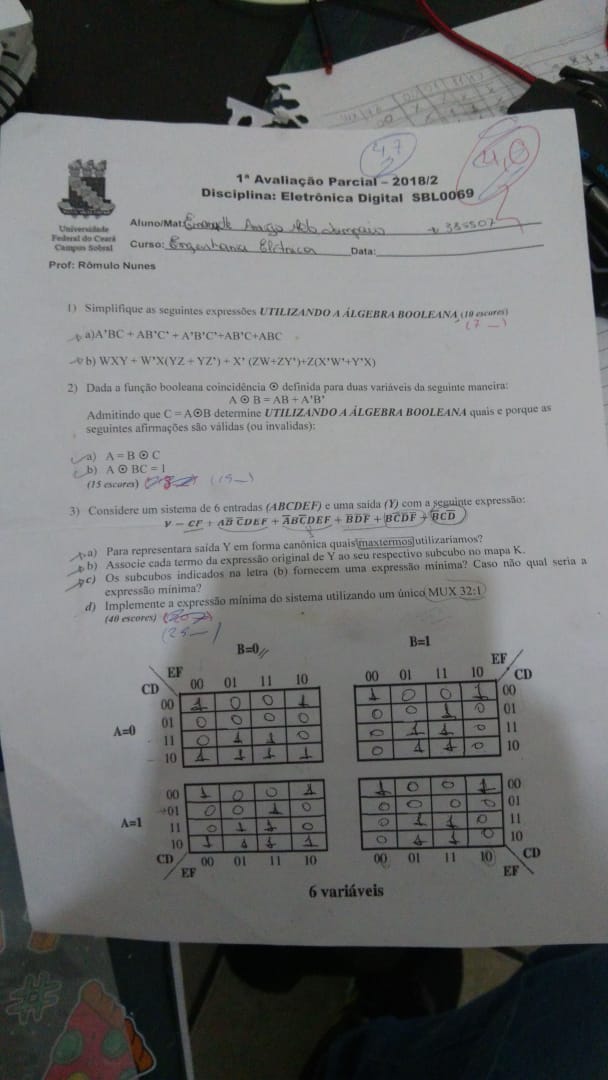 4,7
4,6
1ª Avaliação Parcial – 2018/2
Disciplina: Eletrônica Digital SBL0069
Universidade
Federal do Ceará
Campus Sobral
Aluno/Mat:
Curso: Engenharia Elétrica Data:
Prof: Rômulo Nunes
1) Simplifique as seguintes expressões UTILIZANDO A ÁLGEBRA BOOLEANA (10 escores)
(7 —)
a)A'BC + AB'C' + A'B'C'+AB'C+ABC
b) WXY + W'X(YZ + YZ') + X' (ZW+ZY')+Z(X'W'+Y'X)
2) Dada a função booleana coincidência ⊙ definida para duas variáveis da seguinte maneira:
A ⊙ B = AB + A'B'
Admitindo que C = A⊙B determine UTILIZANDO A ÁLGEBRA BOOLEANA quais e porque as
seguintes afirmações são válidas (ou invalidas):
a) A = B ⊙ C
b) A ⊙ BC = 1
(15 escores) (15 —)
3) Considere um sistema de 6 entradas (ABCDEF) e uma saída (Y) com a seguinte expressão:
a) Para representara saída Y em forma canônica quais maxtermos utilizaríamos?
b) Associe cada termo da expressão original de Y ao seu respectivo subcubo no mapa K.
c) Os subcubos indicados na letra (b) fornecem uma expressão mínima? Caso não qual seria a
expressão mínima?
d) Implemente a expressão mínima do sistema utilizando um único MUX 32:1
(40 escores)
(25 —)
B=0 B=1
EF EF
00 01 11 10 00 01 11 10
CD CD
00 1 0 0 1 1 0 0 1 00
01 0 0 0 0 0 0 1 0 01
A=0
11 0 1 1 0 0 1 1 0 11
10 1 1 1 1 0 1 1 0 10
00 1 0 0 1 1 0 0 1 00
01 0 0 1 0 0 0 0 0 01
A=1
11 0 1 1 0 0 1 1 0 11
10 1 1 1 1 0 1 1 0 10
CD 00 01 11 10 00 01 11 10 CD
EF EF
6 variáveis